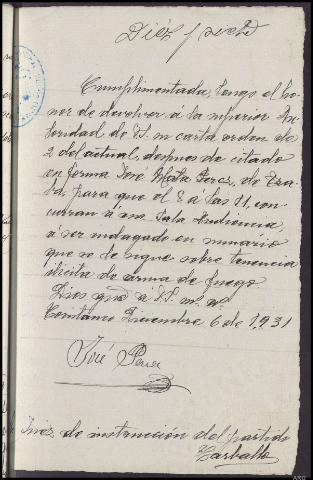 Cumplimentada, tengo el ho-
nor de devolver á la superior Au-
toridad de V.S. su carta orden de
2 del actual, despues de citado
en forma José Mata Perez, de
para que el 8 a las 11, con-
curran á esa Sala Audiencia,
á ser indagado en sumario
que se le sigue sobre tenencia
ilicita de arma de fuego
Dios gue á V.S. m. a.
Diciembre 6 de 1,931
José
Juez de instrucción del partido
Carballo